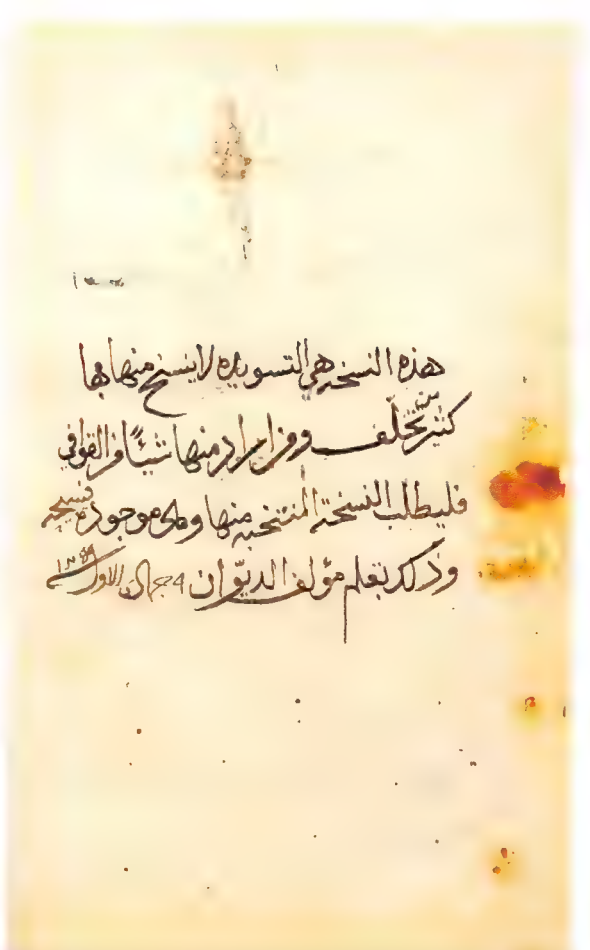 هذه النسخه هي التسويده لا ينسخ منها بها
كثير من تخلف ومن اراد منها شيئا من القوافي
فليطلب النسخة المنتخبه منها وهي موجوده
وذلك بقلم مؤلف الديوان جماد الاول